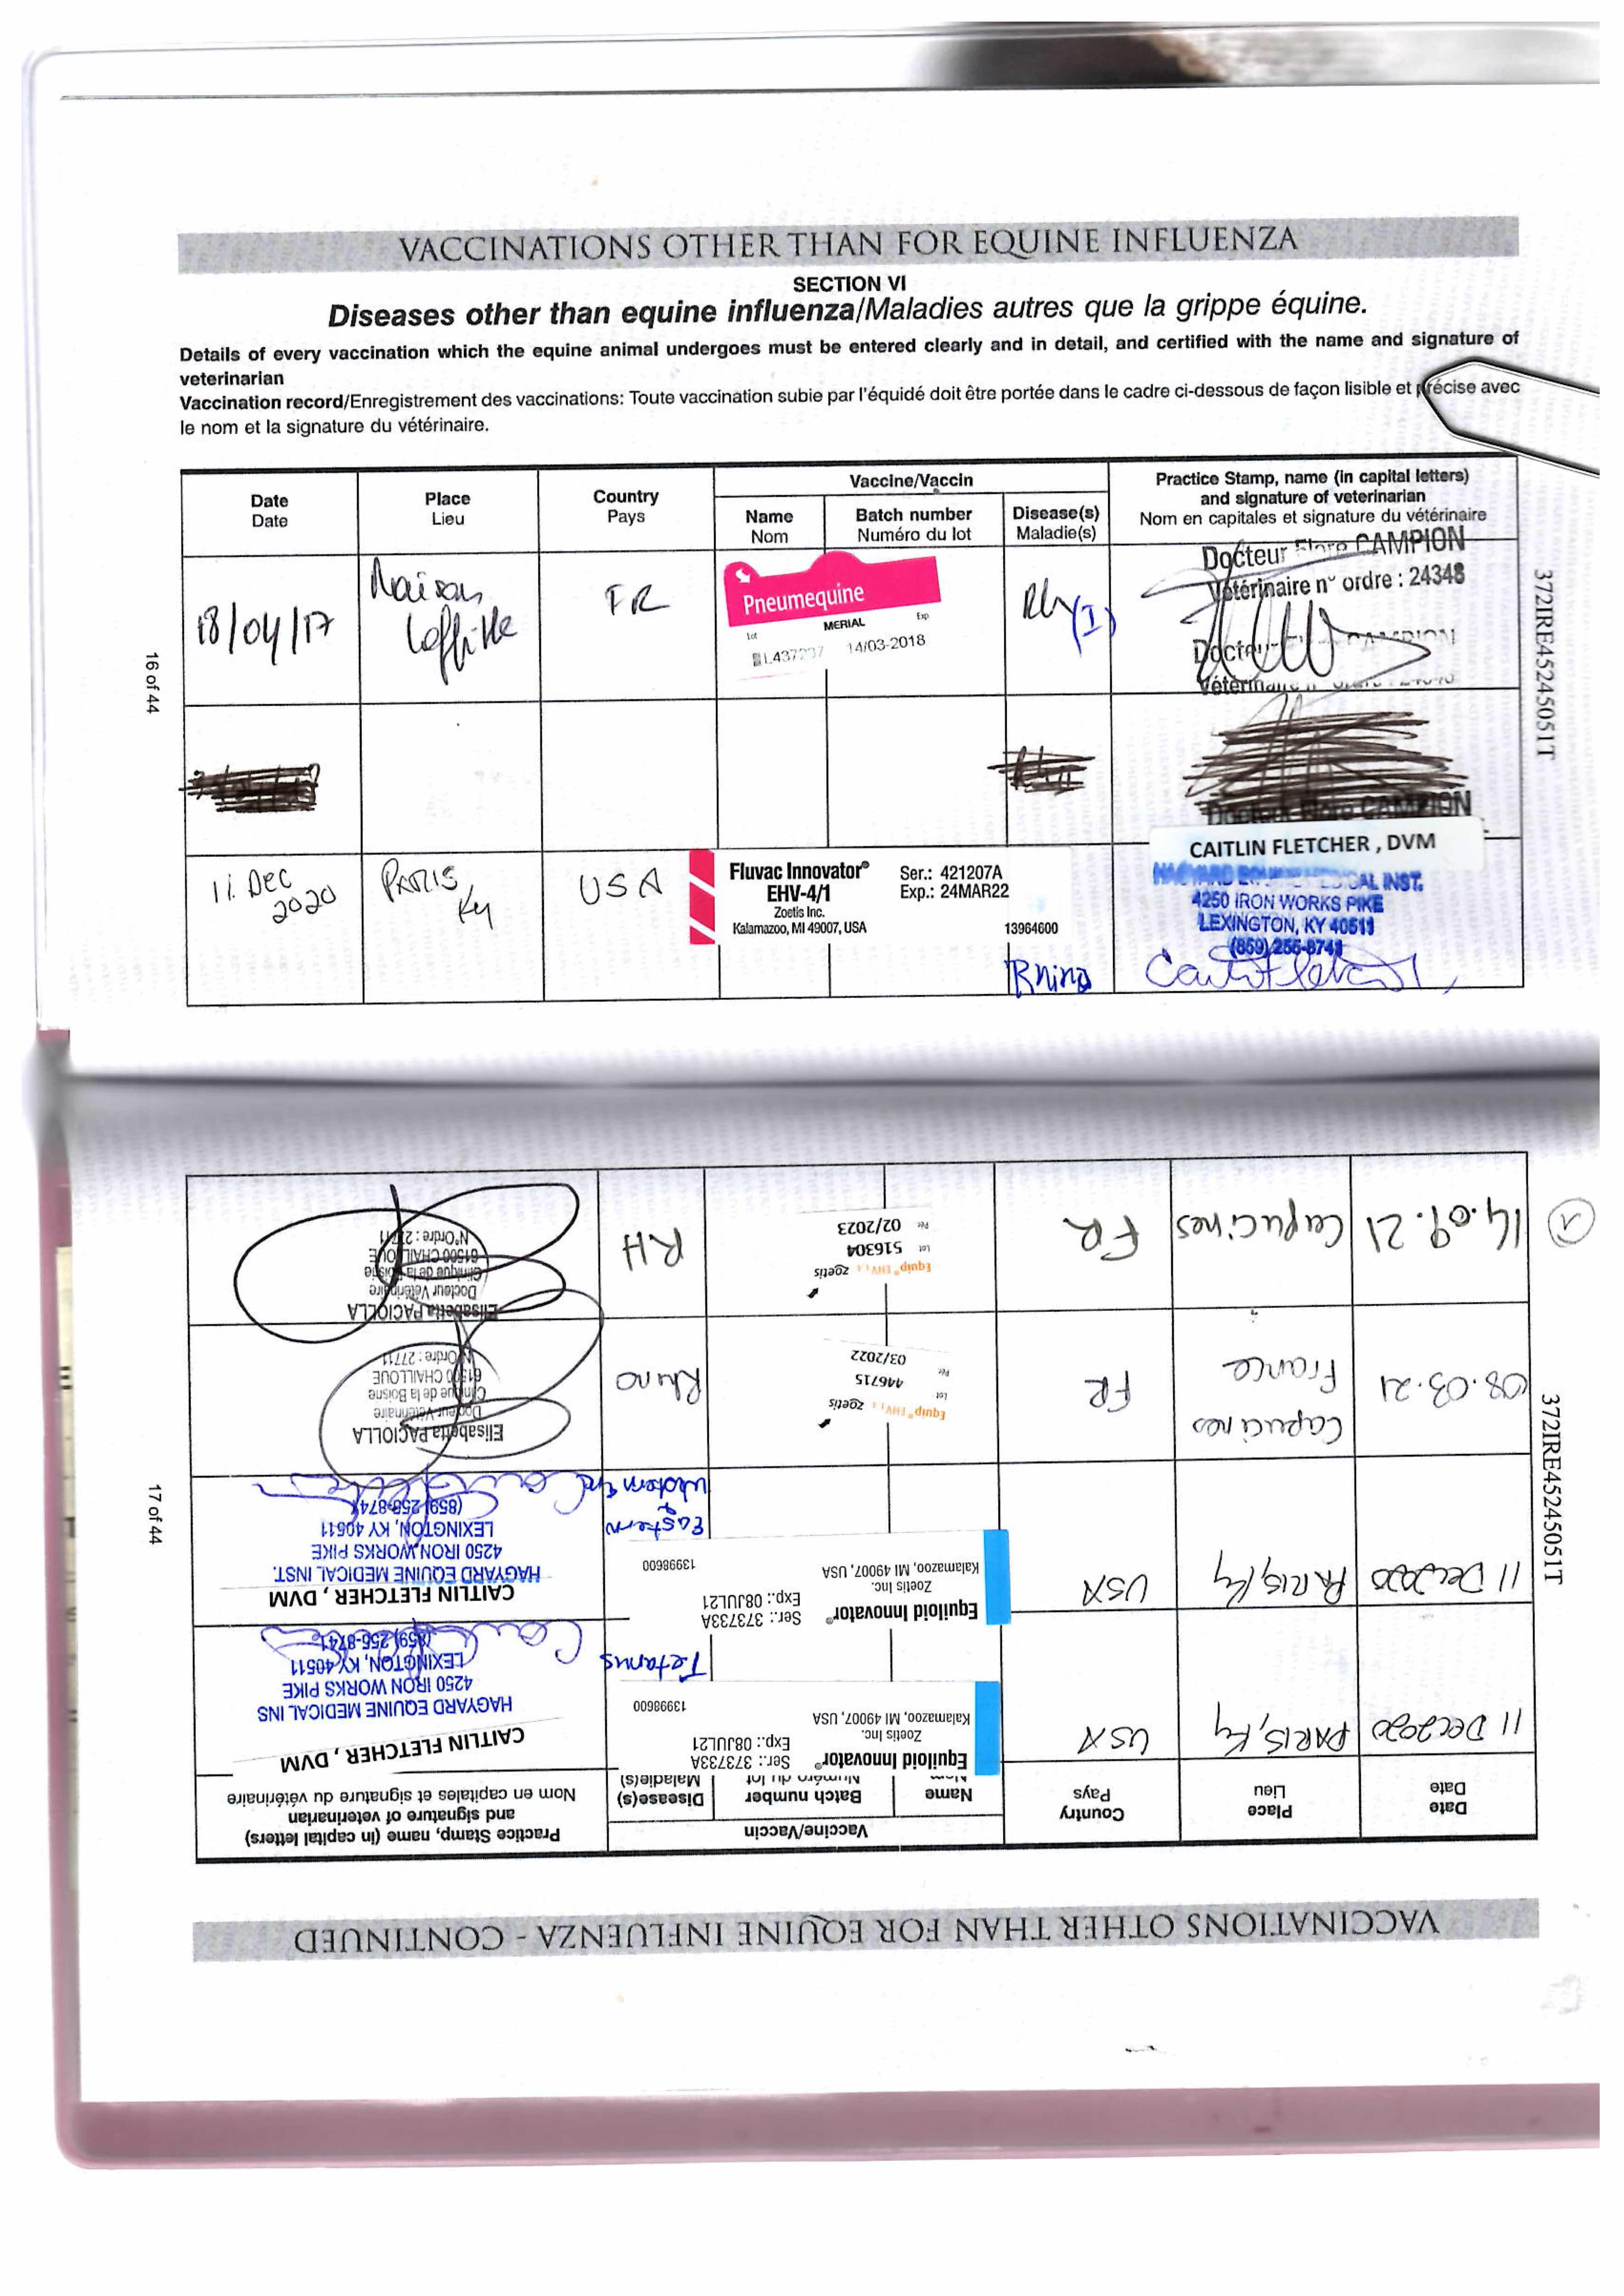 VACCINATIONS OTHER THAN FOR EQUINE INFLUENZA
SECTION VI
Diseases other than equine influenza/Maladies autres que la grippe équine.
Details of every vaccination which the equine animal undergoes must be entered clearly and in detail, and certified with the name and signature of
veterinarian
Vaccination record/Enregistrement des vaccinations: Toute vaccination subie par l'équidé doit être portée dans le cadre ci-dessous de façon lisible et précise avec
le nom et la signature du vétérinaire.
Date
Date
Place
Lieu
Country
Pays
Vaccine/Vaccin
Name
Nom
Batch number
Numéro du lot
Disease(s)
Maladie(s)
Practice Stamp, name (in capital letters)
and signature of veterinarian
Nom en capitales et signature du vétérinaire
18/04/17
Maison
Laffitte
FR
Pneumequine
MERIAL
Lot
Exp
L437237
14/03-2018
Rh (I)
Docteur Flore CAMPION
Vétérinaire n° ordre : 24348
Docteur CAMPION
Vétérinaire n°
Docteur Flore CAMPION
11. Dec
2020
PARIS,
Ky
USA
Fluvac Innovator®
EHV-4/1
Zoetis Inc.
Kalamazoo, MI 49007, USA
Ser.: 421207A
Exp.: 24MAR22
13964600
Rhino
CAITLIN FLETCHER , DVM
HAGYARD EQUINE MEDICAL INST.
4250 IRON WORKS PIKE
LEXINGTON, KY 40511
(859) 255-8741
16 of 44
372IRE45245051T
VACCINATIONS OTHER THAN FOR EQUINE INFLUENZA - CONTINUED
Date
Date
Place
Lieu
Country
Pays
Vaccine/Vaccin
Name
Nom
Batch number
Numéro du lot
Disease(s)
Maladie(s)
Practice Stamp, name (in capital letters)
and signature of veterinarian
Nom en capitales et signature du vétérinaire
11 Dec 2020
PARIS, Ky
USA
Equiloid Innovator®
Zoetis Inc.
Kalamazoo, MI 49007, USA
Ser.: 373733A
Exp.: 08JUL21
13998600
Tetanus
CAITLIN FLETCHER , DVM
HAGYARD EQUINE MEDICAL INS
4250 IRON WORKS PIKE
LEXINGTON, KY 40511
(859) 255-8741
11 Dec 2020
PARIS, Ky
USA
Equiloid Innovator®
Zoetis Inc.
Kalamazoo, MI 49007, USA
Ser.: 373733A
Exp.: 08JUL21
13998600
Eastern
&
Western Enc
CAITLIN FLETCHER , DVM
HAGYARD EQUINE MEDICAL INST.
4250 IRON WORKS PIKE
LEXINGTON, KY 40511
(859) 255-8741
08.03.21
Capucines
France
FR
Equip® EHV 1,4 zoetis
Lot 446715
Per 03/2022
Rhino
Elisabetta PACIOLLA
Docteur Vétérinaire
Clinique de la Boisne
61500 CHAILLOUE
N°Ordre : 27711
14.09.21
Capucines
FR
Equip® EHV 1,4 zoetis
Lot 516304
Per 02/2023
RH
Elisabetta PACIOLLA
Docteur Vétérinaire
Clinique de la Boisne
61500 CHAILLOUE
N°Ordre : 27711
1
17 of 44
372IRE45245051T